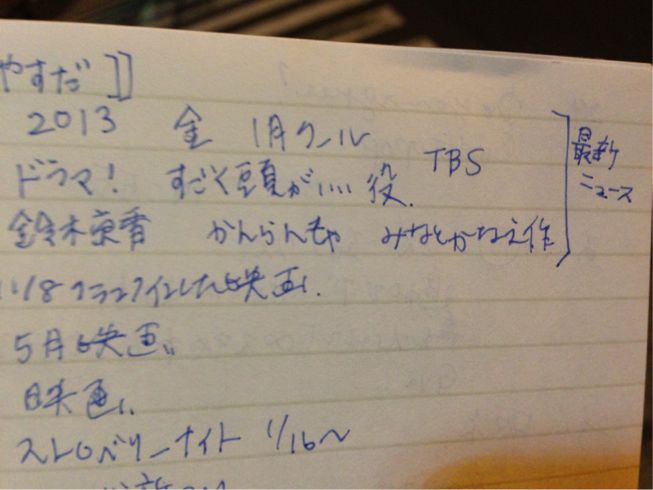 やすだ】】
2013 金 1月クール
TBS
ドラマ! すごく頭がいい役.
鈴木京香 かんらんしゃ みなとかなえ作
最新
ニュース
11/8 クランクインした映画.
5月映画.
映画.
ストロベリーナイト 1/16〜